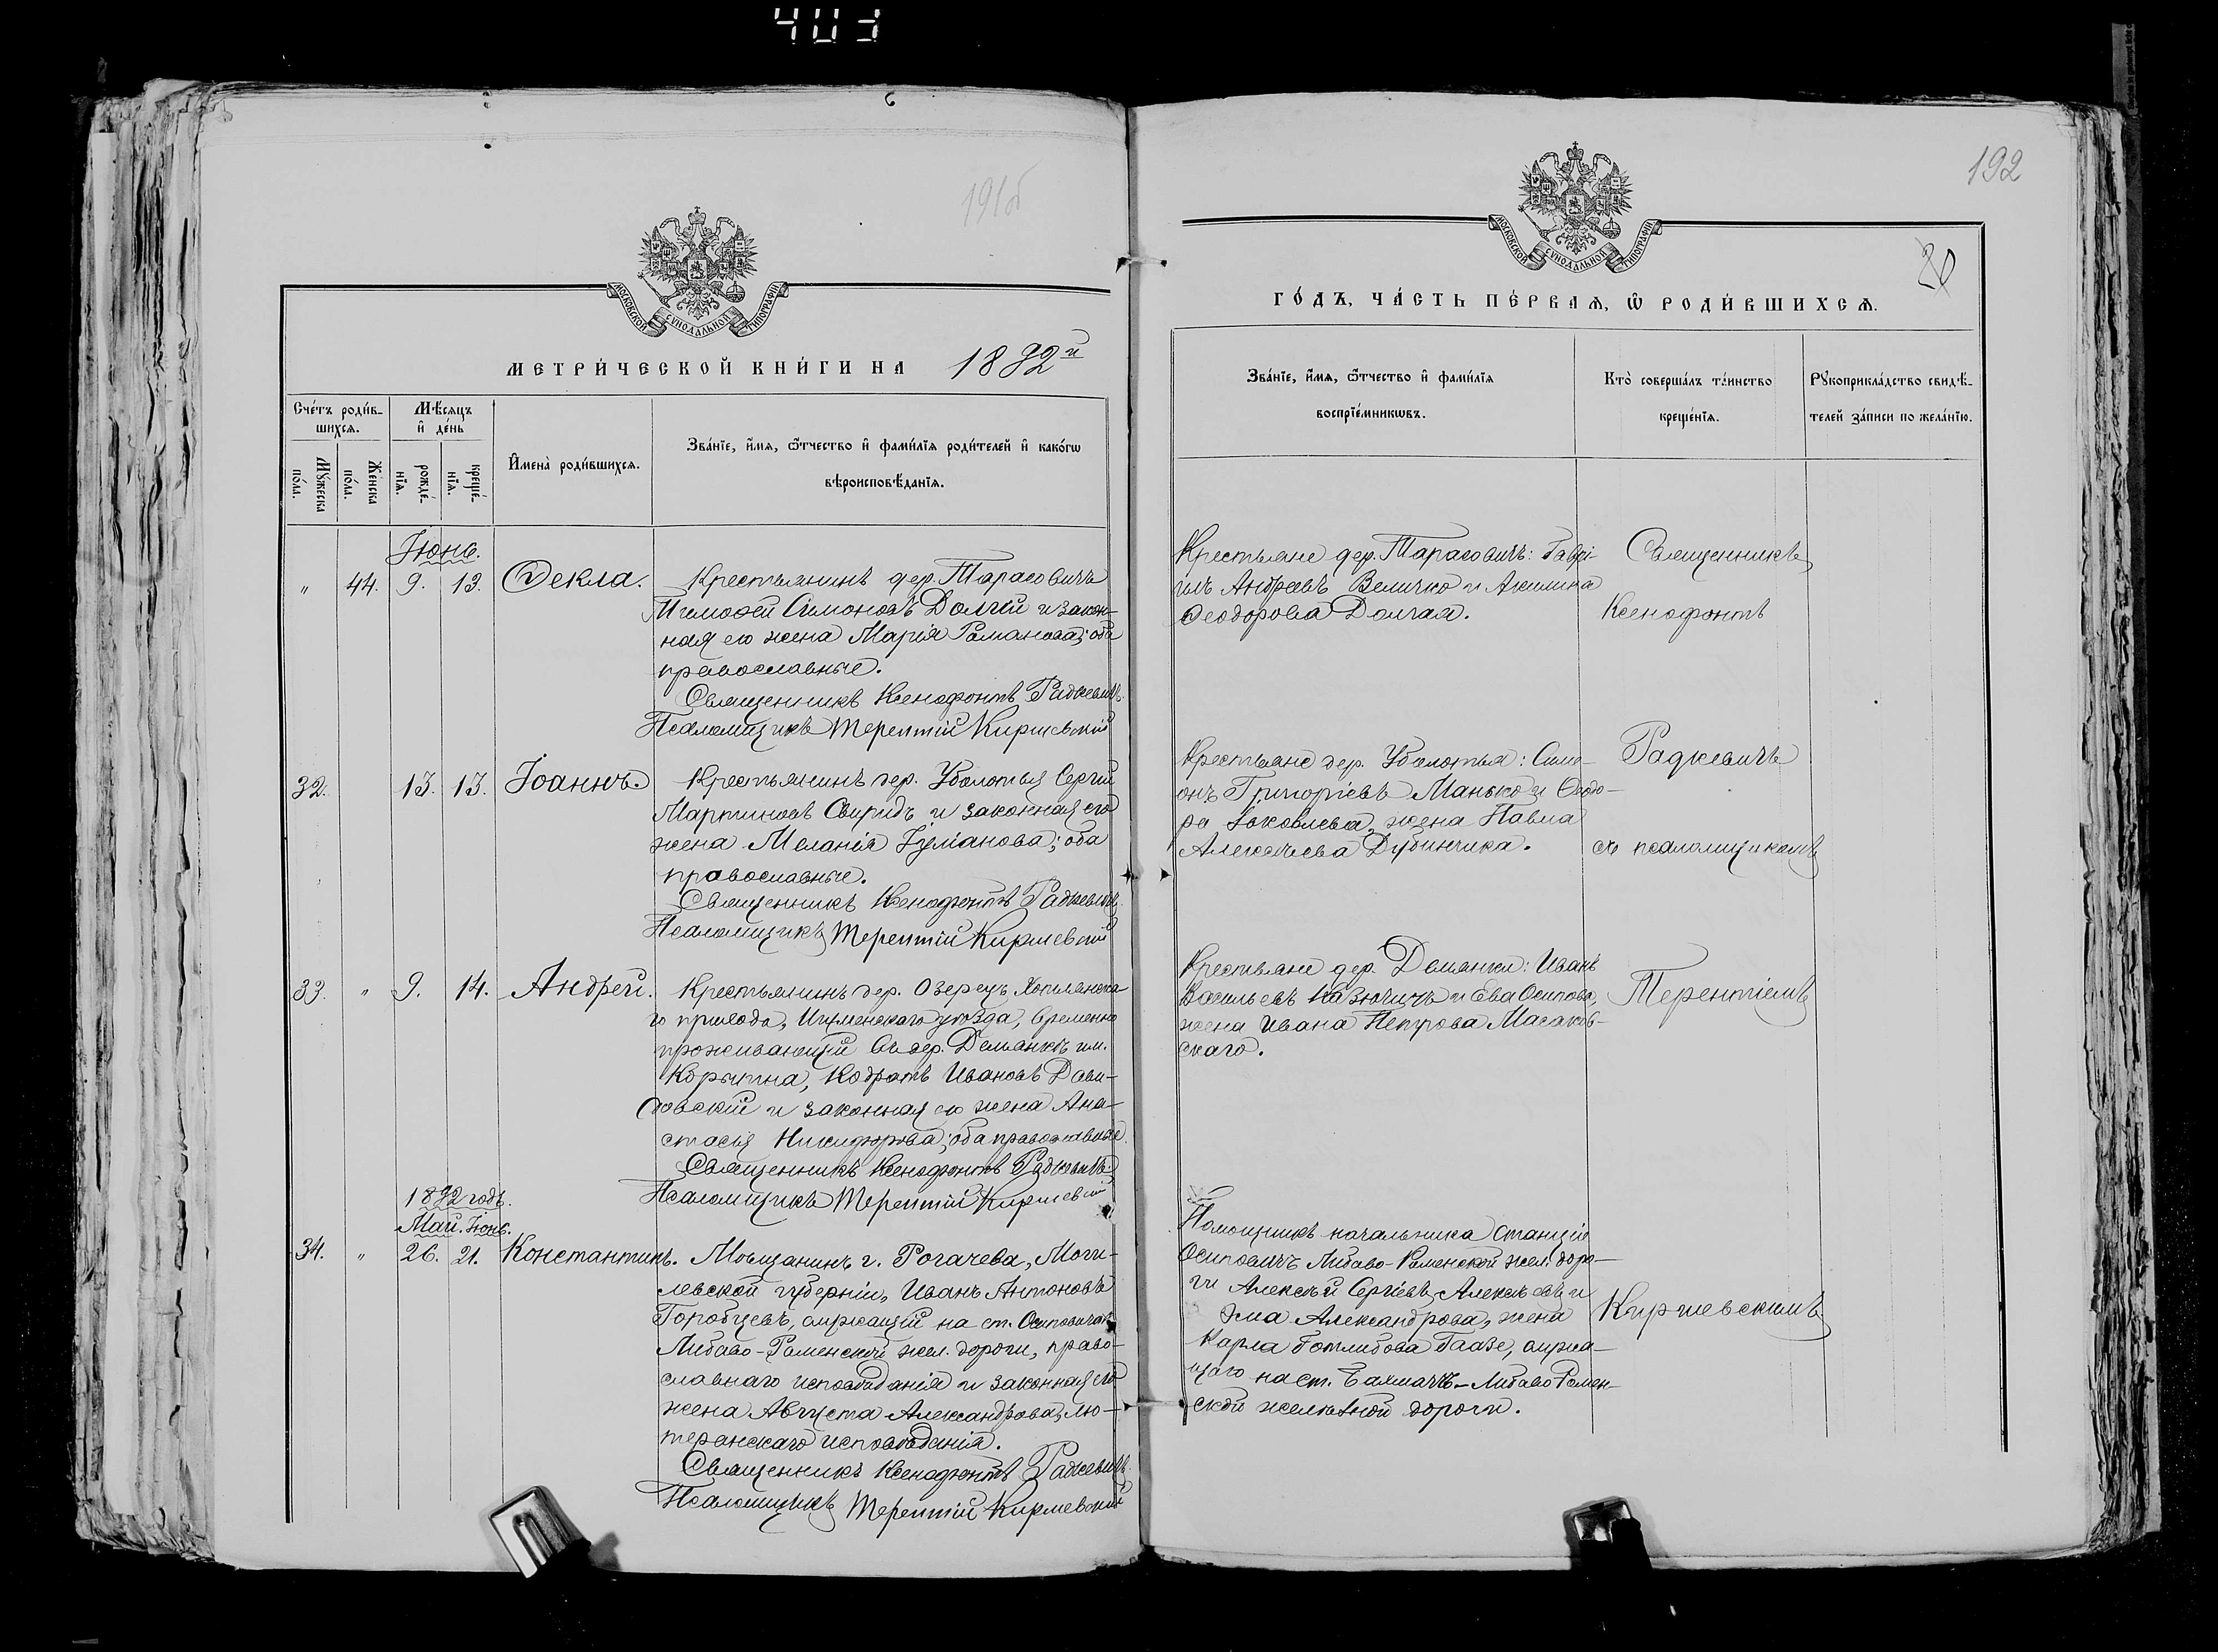 403
191об
МОСКОВСКОЙ СѴНОДАЛЬНОЙ ТИПОГРАФІИ
МЕТРИ́ЧЕСКОЙ КНИ́ГИ НА 1892й
Сче́тъ роди́в-
шихсѧ.
Мѣ́сѧцъ
и҆ де́нь
Мꙋ́жеска
по́ла.
Же́нска
по́ла.
рожде́-
нїѧ.
креще́-
нїѧ.
И҆мена̀ роди́вшихсѧ.
Зва́нїе, и҆́мѧ, ѻ҆́тчество и҆ фами́лїѧ роди́телей и҆ како́гѡ
вѣроисповѣ́данїѧ.
Іюнь.
" 44. 9. 13. Ѳекла. Крестьянинъ дер. Тарасовичъ
Тимоѳей Симоновъ Долгій и закон-
ная его жена Марія Романова; оба
православные.
Священникъ Ксенофонтъ Радкевичъ.
Псаломщикъ Терентій Киршевскій
32. 13. 13. Іоаннъ. Крестьянинъ дер. Уболотья Сергій
Мартиновъ Свиридъ и законная его
жена Меланія Іуліанова; оба
православные.
Священникъ Ксенофонтъ Радкевичъ.
Псаломщикъ Терентій Киршевскій
33. " 9. 14. Андрей. Крестьянинъ дер. Озерецъ, Хотлянска-
го прихода, Игуменскаго уѣзда, временно
проживающій въ дер. Деманкѣ им.
Корытна, Кодратъ Ивановъ Дави-
довскій и законная его жена Ана-
стасія Никифорова; оба православные.
Священникъ Ксенофонтъ Радкевичъ.
Псаломщикъ Терентій Киршевскій
1892 годъ.
Май. Іюнь.
34. " 26. 21. Константинъ. Мѣщанинъ г. Рогачева, Моги-
левской губерніи, Иванъ Антоновъ
Горобцевъ, служащій на ст. Осиповичахъ
Либаво-Роменской жел. дороги, право-
славнаго исповѣданія и законная его
жена Августа Александрова, лю-
теранскаго исповѣданія.
Священникъ Ксенофонтъ Радкевичъ.
Псаломщикъ Терентій Киршевскій
192
МОСКОВСКОЙ СѴНОДАЛЬНОЙ ТИПОГРАФІИ
ГО́ДЪ, ЧА́СТЬ ПЕ́РВАѦ, Ѡ҆ РОДИ́ВШИХСѦ.
Зва́нїе, и҆́мѧ, ѻ҆́тчество и҆ фами́лїѧ
воспрїе́мникѡвъ.
Кто̀ соверша́лъ та́инство
креще́нїѧ.
Рꙋкоприкла́дство свидѣ́-
телей за́писи по жела́нїю.
Крестьяне дер. Тарасовичъ: Гаврі-
илъ Андреевъ Величко и Акилина
Ѳеодорова Долгая.
Священникъ
Ксенофонтъ
Крестьяне дер. Уболотья: Симе-
онъ Григоріевъ Манько и Ѳеодо-
ра Іаковлева, жена Павла
Алексѣева Дубинчика.
Радкевичъ
съ псаломщикомъ
Крестьяне дер. Деманки: Иванъ
Васильевъ Казючичъ и Ева Осипова,
жена Ивана Петрова Масаков-
скаго.
Терентіемъ
Помощникъ начальника станціи
Осиповичъ Либаво-Роменской жел. доро-
ги Алексѣй Сергіевъ Алексѣевъ и
Эма Александрова, жена
Карла Готлибова Гаазе, служа-
щаго на ст. Бахмачъ-Либаво Ромен-
ской желѣзной дороги.
Киршевскимъ